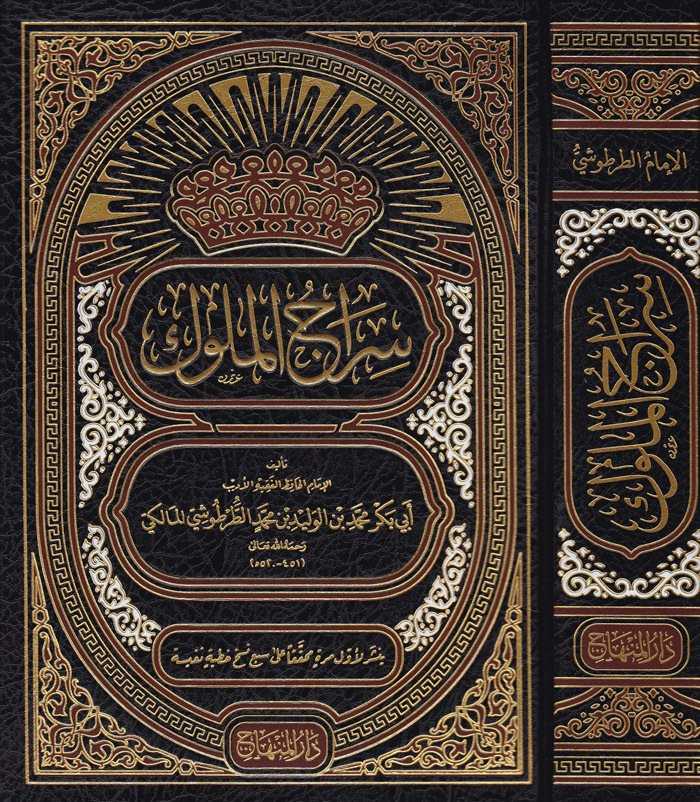 سِرَاجُ الْمُلُوكِ
تأليف
الإمام الحافظ الفقيه الأديب
أبي بكر محمد بن الوليد بن محمد الطُّرْطُوشيّ المالكيّ
رحمه الله تعالى
(٤٥١-٥٢٠هـ)
ينشر لأول مرة محققاً على سبع نسخ خطية نفيسة
دار المنهاج
الإمام الطرطوشيّ
سِرَاجُ الْمُلُوكِ
دار المنهاج